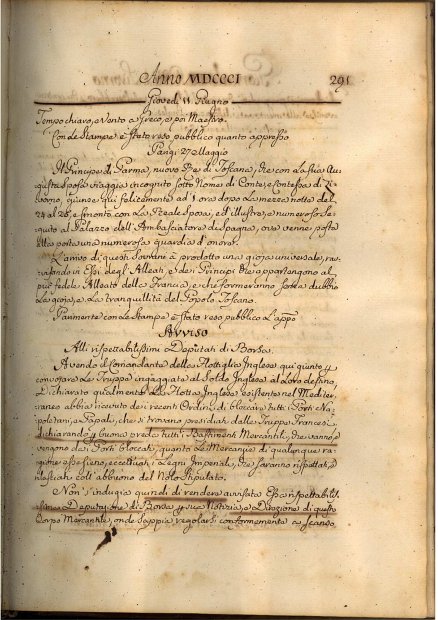 Anno MDCCCI
295
Giovedì 11 Giugno
Tempo chiaro, e Vento a Greco, e poi Maestro.
Con le Stampe è stato reso pubblico quanto appresso
Parigi 27 Maggio
Il Principe di Parma, nuovo Re di Toscana, che con la sua Au-
gusta Sposa viaggia incognito sotto Nome di Conte, e Contessa di Li-
vorno, giunse qui felicemente ad 1 ora dopo la mezza notte del
24 al 25, e smontò con la Reale Sposa, ed illustre, e numeroso Se-
guito al Palazzo dell'Ambasciatore di Spagna, ove venne posta
alla porta una numerosa guardia d'onore.
L'arrivo di questi Sovrani à prodotto una gioja universale, rav-
visandosi in Essi degl'Alleati, e dei Principi che appartengono al
più fedele Alleato della Francia, e che formeranno senza dubbio
la gioja, e la tranquillità del Popolo Toscano.
Parimente con le Stampe è stato reso pubblico l'app.
Avviso
Alli rispettabilissimi Deputati di Borsa.
Avendo il Comandante della Flottiglia Inglese qui giunto per
convojare le Truppe ingaggiate al Soldo Inglese al loro destino,
Dichiarato qualmente la Flotta Inglese esistente nel Mediter-
raneo abbia ricevuto dei recenti Ordini di bloccare tutti i Porti Na-
poletani, e Papali, che si trovano presidiati dalle Truppe Francesi,
dichiarando di buona preda tutti i Bastimenti Mercantili, che vanno, e
vengono dai Porti bloccati, quanto le Mercanzie di qualunque ra-
gione esse sieno, eccettuati i Legni Imperiali, che saranno rispettati, e
rilasciati coll'abbuono del Nolo stipulato.
Non indugio quindi di rendere avvisata Essa rispettabilis-
sima Deputazione di Borsa per sua Notizia, e Direzione di questo
Corpo Mercantile, onde sappia regolarsi conformemente a scanso